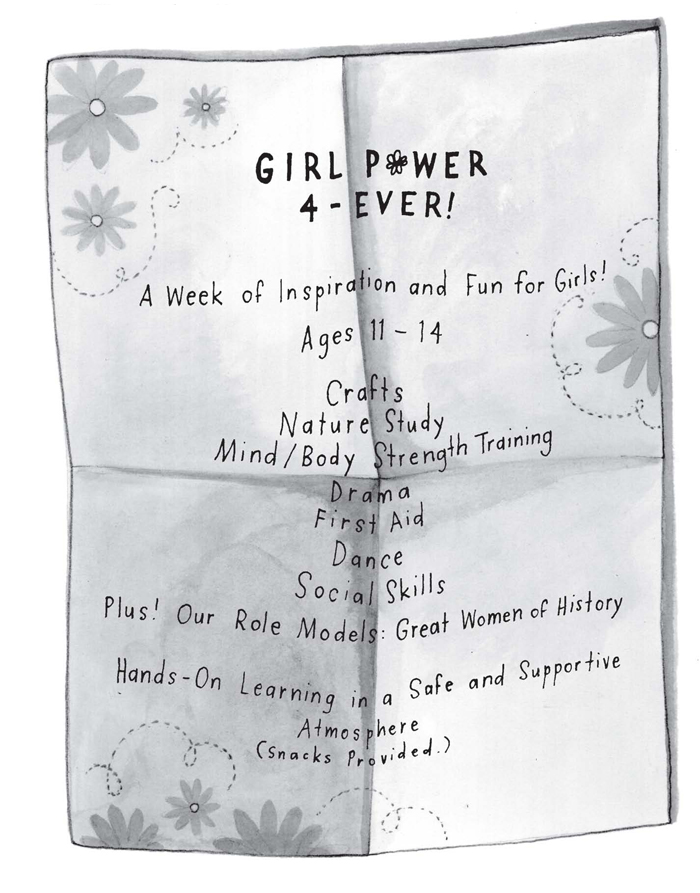 GIRL POWER
4-EVER!
A Week of Inspiration and Fun for Girls!
Ages 11 - 14
Crafts
Nature Study
Mind/Body Strength Training
Drama
First Aid
Dance
Social Skills
Plus! Our Role Models: Great Women of History
Hands-On Learning in a Safe and Supportive
Atmosphere
(Snacks Provided.)